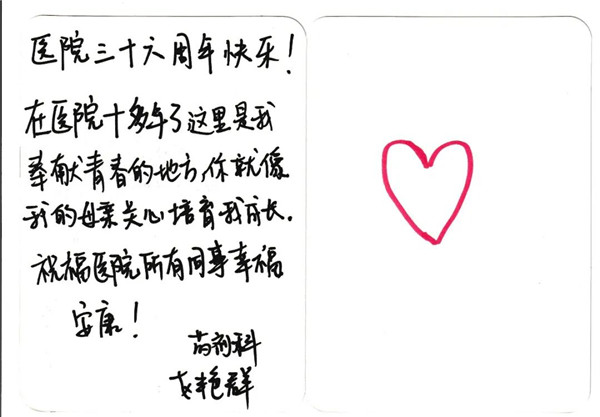 医院三十六周年快乐!
在医院十多年了这里是我
奉献青春的地方,你就像
我的母亲关心培育我成长.
祝福医院所有同事幸福
安康!
药剂科
艳群